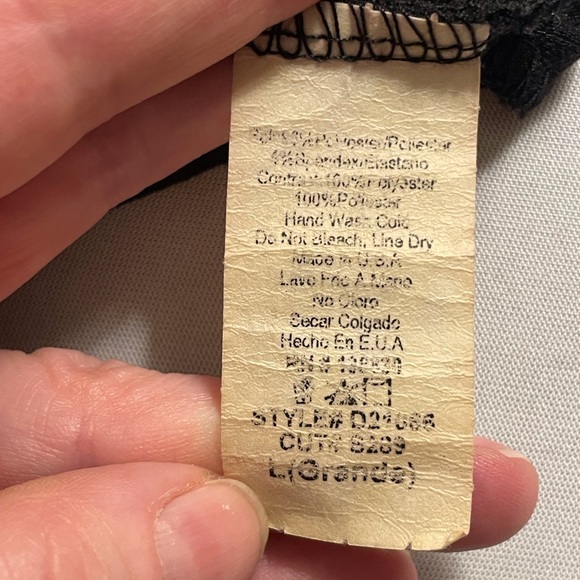 Polyester/Poliester
4%Spandex/Elastano
Contrast 100%Polyester
100%Poliester
Hand Wash Cold
Do Not Bleach, Line Dry
Made in U.S.A
Lave Frio A Mano
No Cloro
Secar Colgado
Hecho En E.U.A
RN #
STYLE#
CUT# S289
L(Grande)